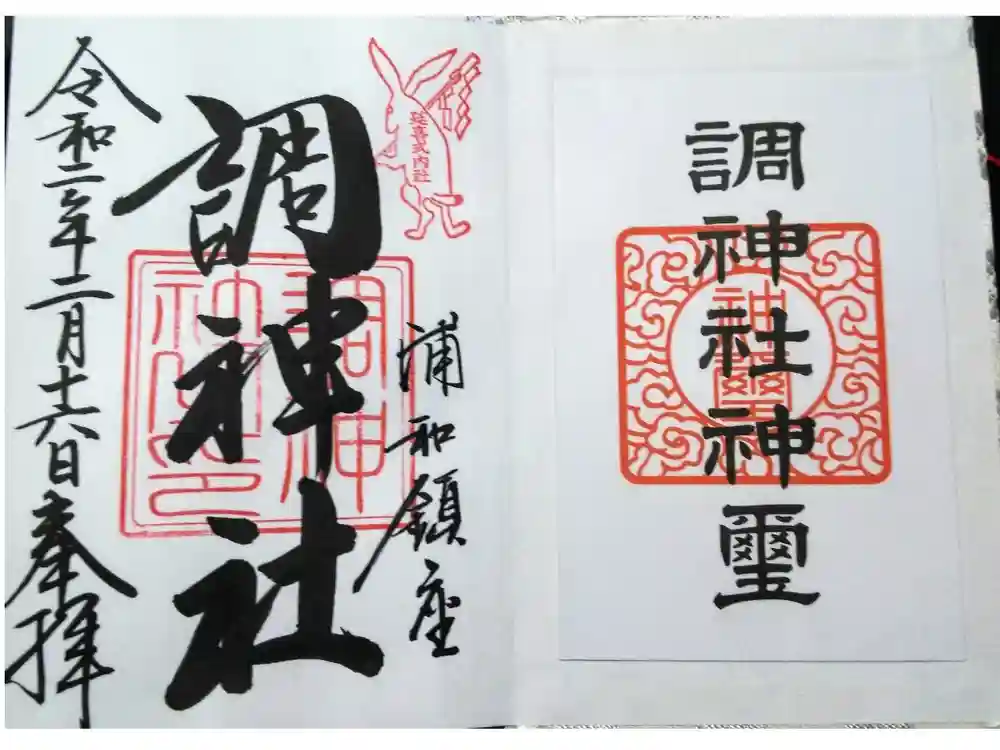 調神社神璽
神璽
延喜式内社
浦和鎮座
調神社
調神
社之印
令和二年二月十六日奉拝